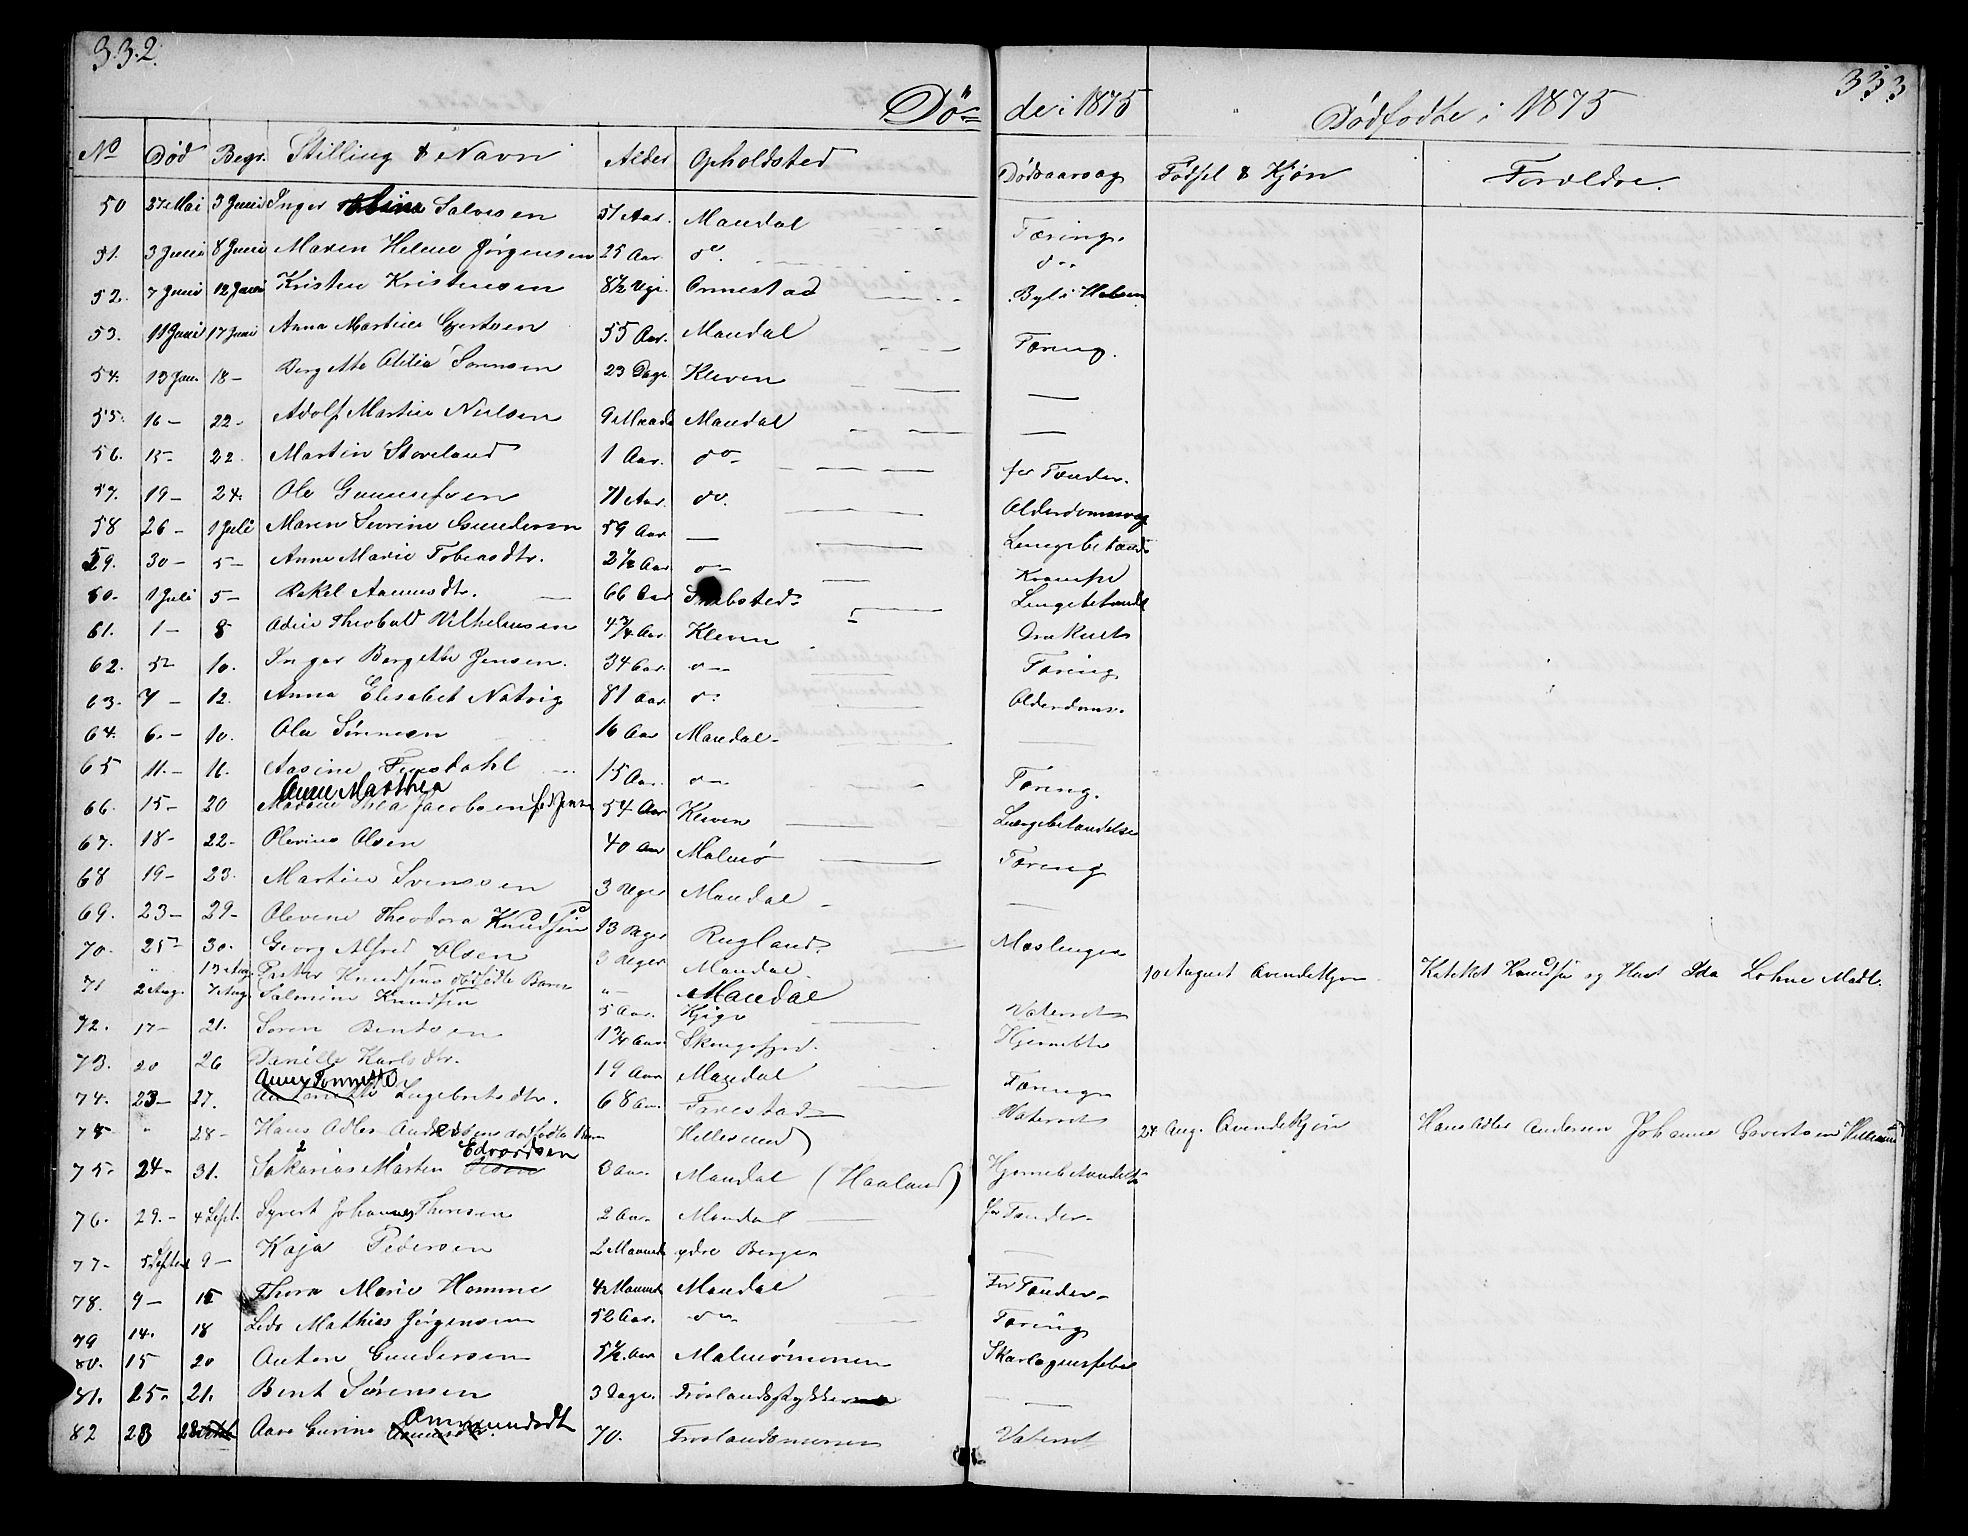 332. 333
Dø= de i 1875 Dødfødte i 1875
No Død Begr. Stilling & Navn Alder Opholdsted Dødsaarsag Fødsel & Kjøn Forældre.
50 27 Mai 3 Juni Inger Salvesen 51 Aar. Mandal Tæring.
51. 3 Juni 8 Juni Maren Helene Jørgensen 25 Aar do. do
52. 7 Juni 12 Juni Kristen Kristensen 8½ Uge. Ormestad Byld i Halsen
53. 11 Juni 17 Juni Anna Martine Gjertsen 55 Aar. Mandal Tæring.
54. 13 Jun. 18 - Bergitte Otilia Sørensen 23 Dage Kleven —
55. 16 - 22 - Adolf Martin Nielsen 9 Maade Mandal —
56. 15 - 22. Martin Storeland 1 Aar. do for Tænder.
57. 19 - 24. Ole Gunnufsen 71 Aar. do. Alderdomssvag
58 26 - 1 Juli Maren Sevrine Gundersen 59 Aar — Lungebetænd
59. 30 - 5 - Anne Marie Tobiasdtr. 2½ Aar do Krampe
60. 1 Juli 5 - Rakel Aanensdtr. 66 Aar Lungebetændl
61. 1 - 8 Theobald Vilhelmsen 4¾ Aar. Kleven
62. 5 - 10. Inger Bergithe Jensen. 34 Aar. do Tæring
63. 7 - 12. Anna Elisabet Natvig 81 Aar. do Alderdoms.
64. 6. - 10. Ole Sørensen 16 Aar Mandal. —
65 11. - 16. Aasine Finsdahl 15 Aar. do Tæring.
Anne Marthea
66. 15 - 20 Madam Thea Jacobsen fød Jensn 54 Aar Kleven Lungebetændelse
67. 18 - 22 - Olevine Olsen 40 Aar Malmø Tæring
68 19 - 23. Martin Svensen 3 Uger Mandal —
69. 23 - 29 - Olevene Theodora Knudsen 13 Dage Rugland Mæslinger
70. 25 - 30. Georg Alfred Olsen 3 Uger Mandal.
" 13 Aug. Knudsens dødfødte Barn " Mandal 10 August Qvindekjøn Katekket Knudsen og Hust Ida Lohne Madl.
71 2 Aug. 7 Aug. Salmine Knudsen 5 Aar. Kjige Vatersot
72. 17 - 21. Søren Bentsen 1¾ Aar. Skougsfjord. Hjernebt
73. 20 26 Danille Karlsdtr. 19 Aar Mandal Tæring
Anne Tonnette
74. 23 - 27. Ingebretsdtr. 68 Aar. Frøestad Vatersot
" 28 - Hans Adler Andersens dødfødte Barn Hillesund 24 Aug. Qvindekjøn Hans Adler Andersen Johanne Gavertsen Hillesund
Edvardsen
75. 24 - 31. Sakarias Marten Olsen 3 Aar. Mandal (Haaland) Hjernebetændelse
76. 29. - 4 Sept. Syvert Johannes Theresen 2 Aar. Mandal for Tænder.
77 - 5 Septem 9 - Kaja Pedersen 2 Maaned ydre Berge —
78. 9 - 15 Thora Marie Homme 4 Maaned Mandal For Tænder.
79 14. 18 Leds Mathias Jørgensen 52 Aar. do Tæring
80. 15 20 Anton Gundersen 5½ Aar Malmømonen Skarlagensfeber
81. 25. 21. Bent Sørensen 3 Dage. Frøslandsstykkerne —
Ammundsdt
82 23 28 Aase Gurine 70. Frøslandsmonen Vatersot